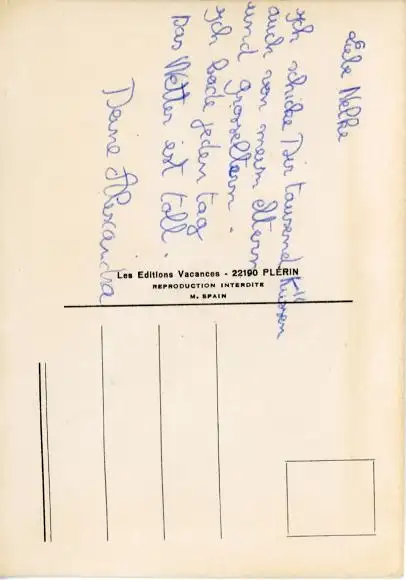 Liebe Nelke
Ich schicke Dir tausend Küssen
auch von mein Eltern
und grosseltern.
Ich bade jeden tag
Das Wetter ist toll.
Deine Alexandra
Les Editions Vacances - 22190 PLÉRIN
REPRODUCTION INTERDITE
M. SPAIN